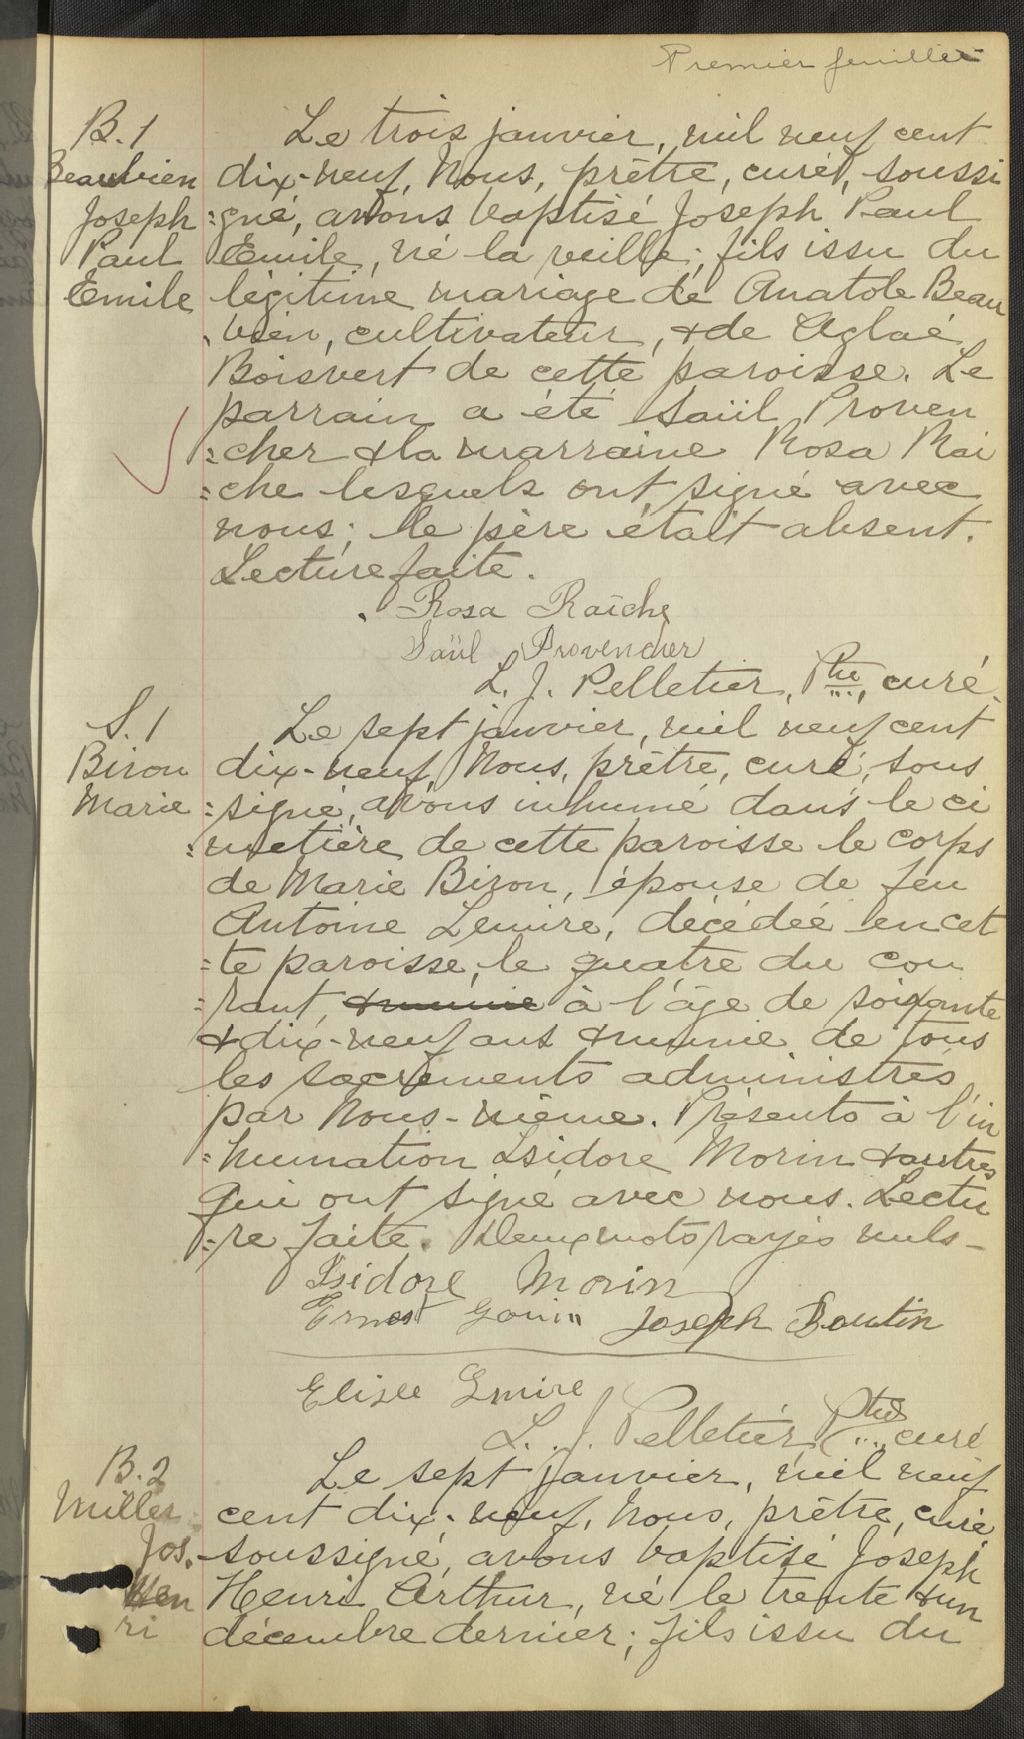 Premier feuillet
B.1
Beaubien
Joseph
Paul
Emile
Le trois janvier, mil neuf cent
dix-neuf, Nous, prêtre, curé, soussi
=gné, avons baptisé Joseph Paul
Emile, né la veille; fils issu du
légitime mariage de Anatole Beau
bien, cultivateur, & de Aglaé
Boisvert de cette paroisse. Le
parrain a été Saül Proven
=cher & la marraine Rosa Raî
=che lesquels ont signé avec
nous; le père était absent.
Lecture faite.
Rosa Raîche
Saül Provencher
L. J. Pelletier, Ptre, curé.
S.1
Biron
Marie
Le sept janvier, mil neuf cent
dix-neuf, Nous, prêtre, curé, sous
=signé, avons inhumé dans le ci
=metière de cette paroisse le corps
de Marie Biron, épouse de feu
Antoine Lemire, décédée en cet
=te paroisse, le quatre du cou
=rant, & munie à l'âge de soixante
& dix-neuf ans & munie de tous
les sacrements administrés
par Nous-même. Présents à l'in
=humation Isidore Morin & autres
qui ont signé avec nous. Lectu
=re faite. Deux mots rayés nuls-
Isidore Morin
Ernest Gouin Joseph Boutin
Elisée Lmire
L. J. Pelletier Ptre curé
B.2
Miller
Jos.
Hen
ri
Le sept janvier, mil neuf
cent dix-neuf, Nous, prêtre, curé
soussigné, avons baptisé Joseph
Henri Arthur, né le trente & un
décembre dernier; fils issu du